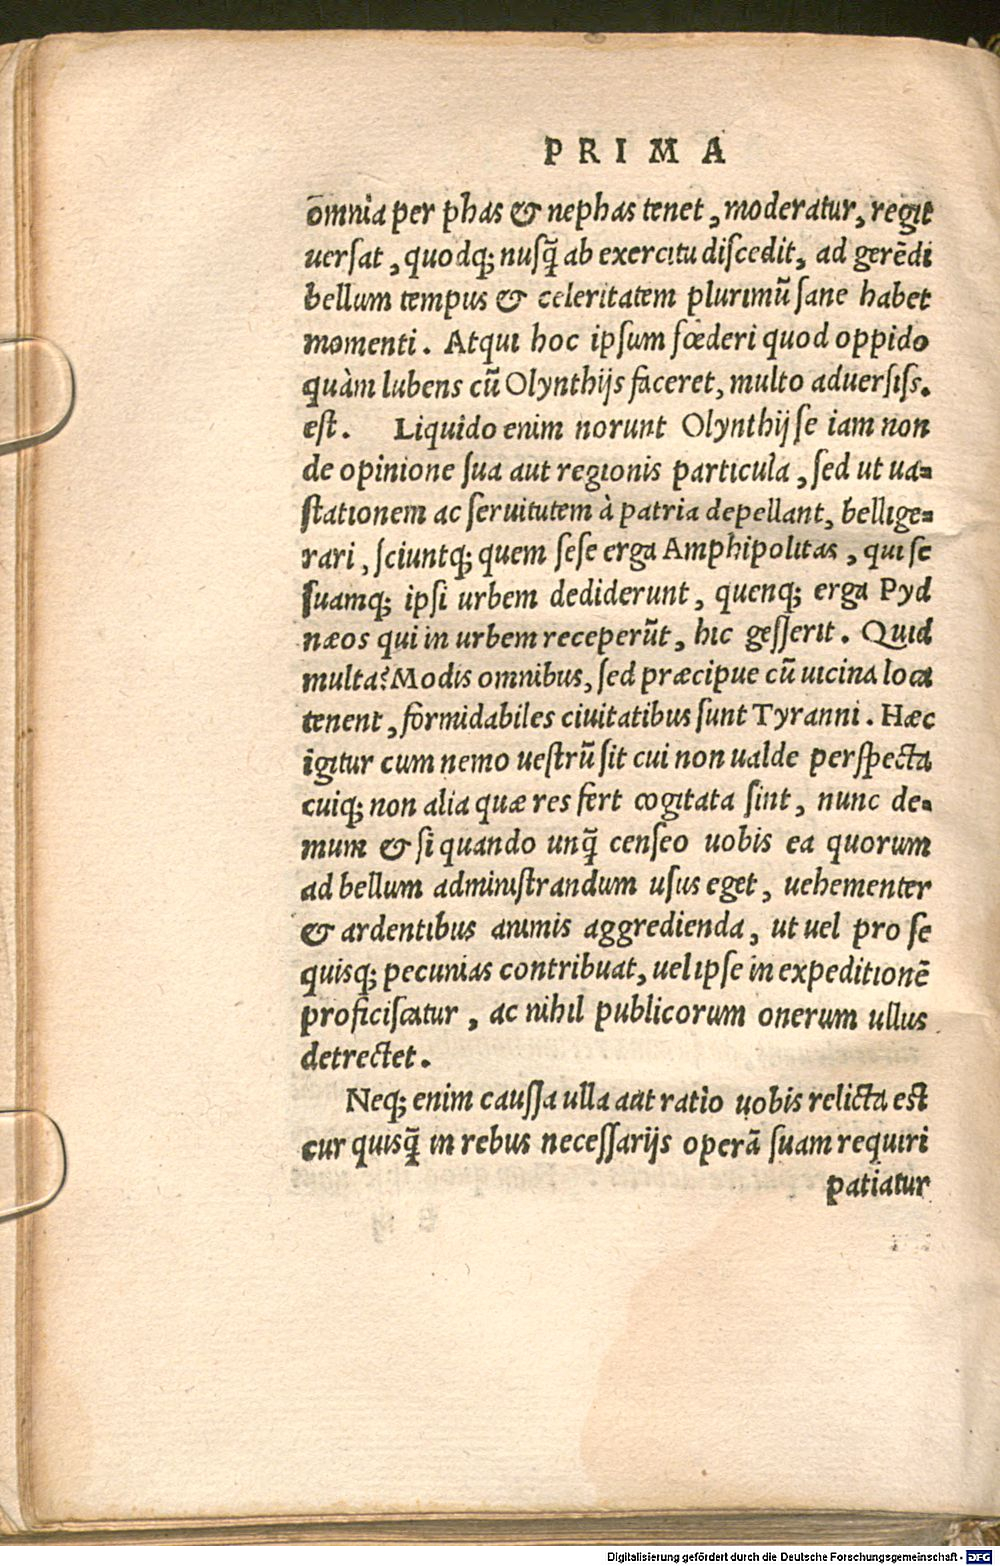 PRIMA
ōmnia per phas & nephas tenet, moderatur, regit
uerſat, quodq; nuſq̄ ab exercitu diſcedit, ad gerēdi
bellum tempus & celeritatem plurimū ſane habet
momenti. Atqui hoc ipſum fœderi quod oppido
quàm lubens cū Olynthijs faceret, multo aduerſiſs.
eſt. Liquido enim norunt Olynthij ſe iam non
de opinione ſua aut regionis particula, ſed ut ua-
ſtationem ac ſeruitutem à patria depellant, bellige-
rari, ſciuntq; quem ſeſe erga Amphipolitas, qui ſe
ſuamq; ipſi urbem dediderunt, quenq; erga Pyd
næos qui in urbem receperūt, hic geſſerit. Quid
multa? Modis omnibus, ſed præcipue cū uicina loca
tenent, formidabiles ciuitatibus ſunt Tyranni. Hæc
igitur cum nemo ueſtrū ſit cui non ualde perſpecta
cuiq; non alia quæ res fert cogitata ſint, nunc de-
mum & ſi quando unq̄ cenſeo uobis ea quorum
ad bellum adminiſtrandum uſus eget, uehementer
& ardentibus animis aggredienda, ut uel pro ſe
quisq; pecunias contribuat, uel ipſe in expeditionē
proficiſcatur, ac nihil publicorum onerum ullus
detrectet.
Neq; enim cauſſa ulla aut ratio uobis relicta eſt
cur quisq̄ in rebus neceſſarijs operā ſuam requiri
patiatur
Digitalisierung gefördert durch die Deutsche Forschungsgemeinschaft - DFG